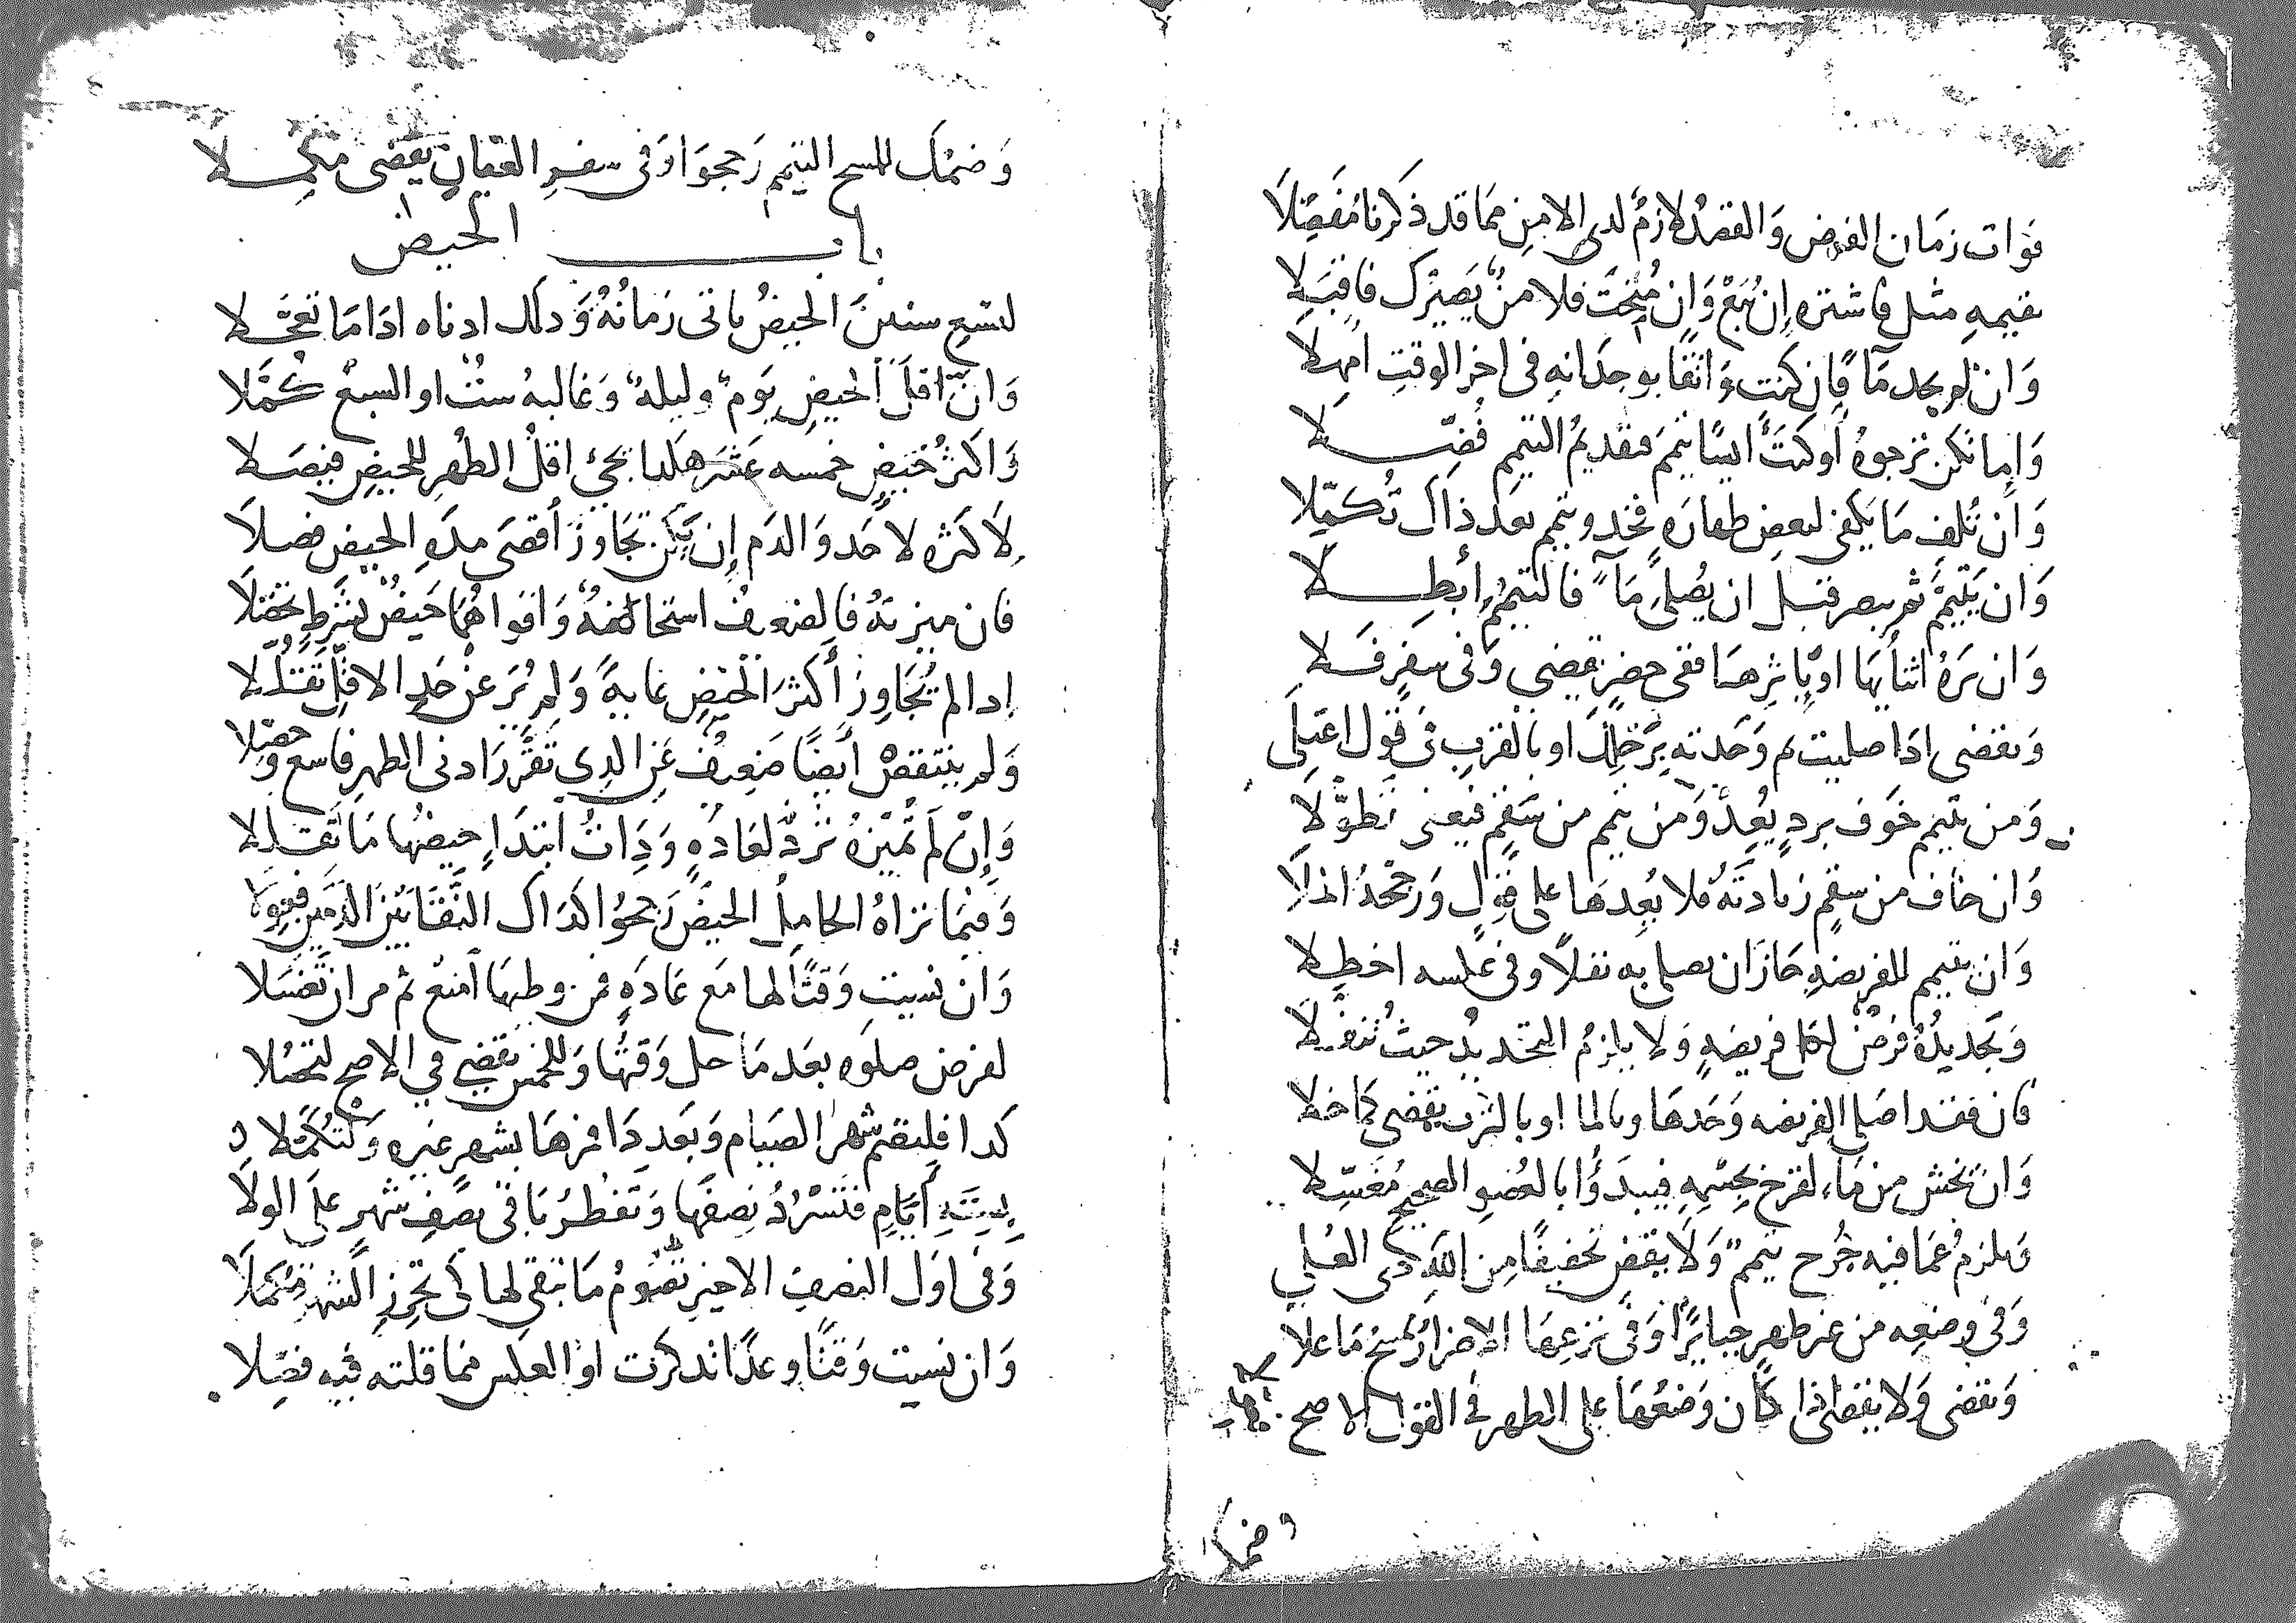 فوات زمان الفرض والقصد لازم لدى الامن مما قد ذكرنا مفصلا
بقيمه مثل فاشتره إن يبع وان منحت فلا من يصيرك فاقبلا
وان لم يجد مآ فان كنت واثقا بوجدانه في اخر الوقت امهلا
واما تكن ترجوه أو كنت ايسا تيمم فتقديم التيمم فضلا
وان تلف ما يكفي لبعض طهارة فخذ وتيمم بعد ذاك تكملا
وان يتيمم ثم يبصر قبل ان يصلي مآ فالتيمم ابطلا
وان يره اثنايها او باثرها ففي حضر تقضي وفي سفر فلا
وتقضي اذا صليت ثم وجدته برحلك او بالقرب في قول اعتلى
ومن تيمم خوف برد يعد ومن تيمم من سقم فيعفى تطولا
وان خاف من سقم زيادته فلا يعدها على قول ورجحه الملا
وان يتيمم للفريضة جاز ان يصلي به نفلا وفي عكسه اخطلا
وتجديده فرض لكل فريضة ولا يلزم التجديد حيث تنفلا
فان فقدا صلى الفريضه وحدها وبالما او بالترب يقضي كما خلا
وان تخش من ماء لقرح بجسمه فيبدؤا بالعضو الصحيح مغسلا
ويلزم عما فيه جرح تيمم ولا يقض تخفيفا من الله ذي العلى
وفي وضعه من غير طهر جبايرا وفي نزعها الاضرار يمسح ما علا
وتقضي ولا يقضى اذا كان وضعها على الطهر في القول الاصح
وضمك
وضمك للمسح التيمم رجحوا وفي سفر العصيان يقضي مكملا
باب الحيض
لتسع سنين الحيض ياتي زمانه وذلك ادناه اذا ما تعجلا
وان اقل الحيض يوم وليله وغالبه ست او السبع كملا
واكثر حيض خمسه عشر هكذا يجي اقل الطهر للحيض فيصلا
لاكثره لا حد والدم إن يكن تجاوز أقصى مدة الحيض فصلا
فان ميزته فالضعيف استحاضة واقواهما حيض بشرط تحصلا
اذا لم تجاوز أكثر الحيض غاية ولم تر عن حد الاقل تقللا
ولم ينتقص أيضا ضعيف عن الذي تقرر ادنى الطهر فاسمع وحصلا
وإن لم تميزه ترد لعادة وذات ابتدا حيضها ما تقللا
وفيما تراه الحامل الحيض رجحوا كذاك النقا بين الدمين
وان نسيت وقتا لها مع عادة فمن وطيها امنع ثم مر ان تغسلا
لفرض صلوه بعد ما حل وقتها وللخمس تقضي في الاصح لتحصلا
كذا فليصم شهر الصيام وبعد ذا فمرها بشهر غيره ولتكملا
بستة أيام فتسرد نصفها وتفطر باقي نصف شهر على الولا
وفي اول النصف الاخير تصوم ما تبقى لها كي تحرز الشهر مكملا
وان نسيت وقتا وعدا تذكرت او العكس مما قلته فيه فصلا